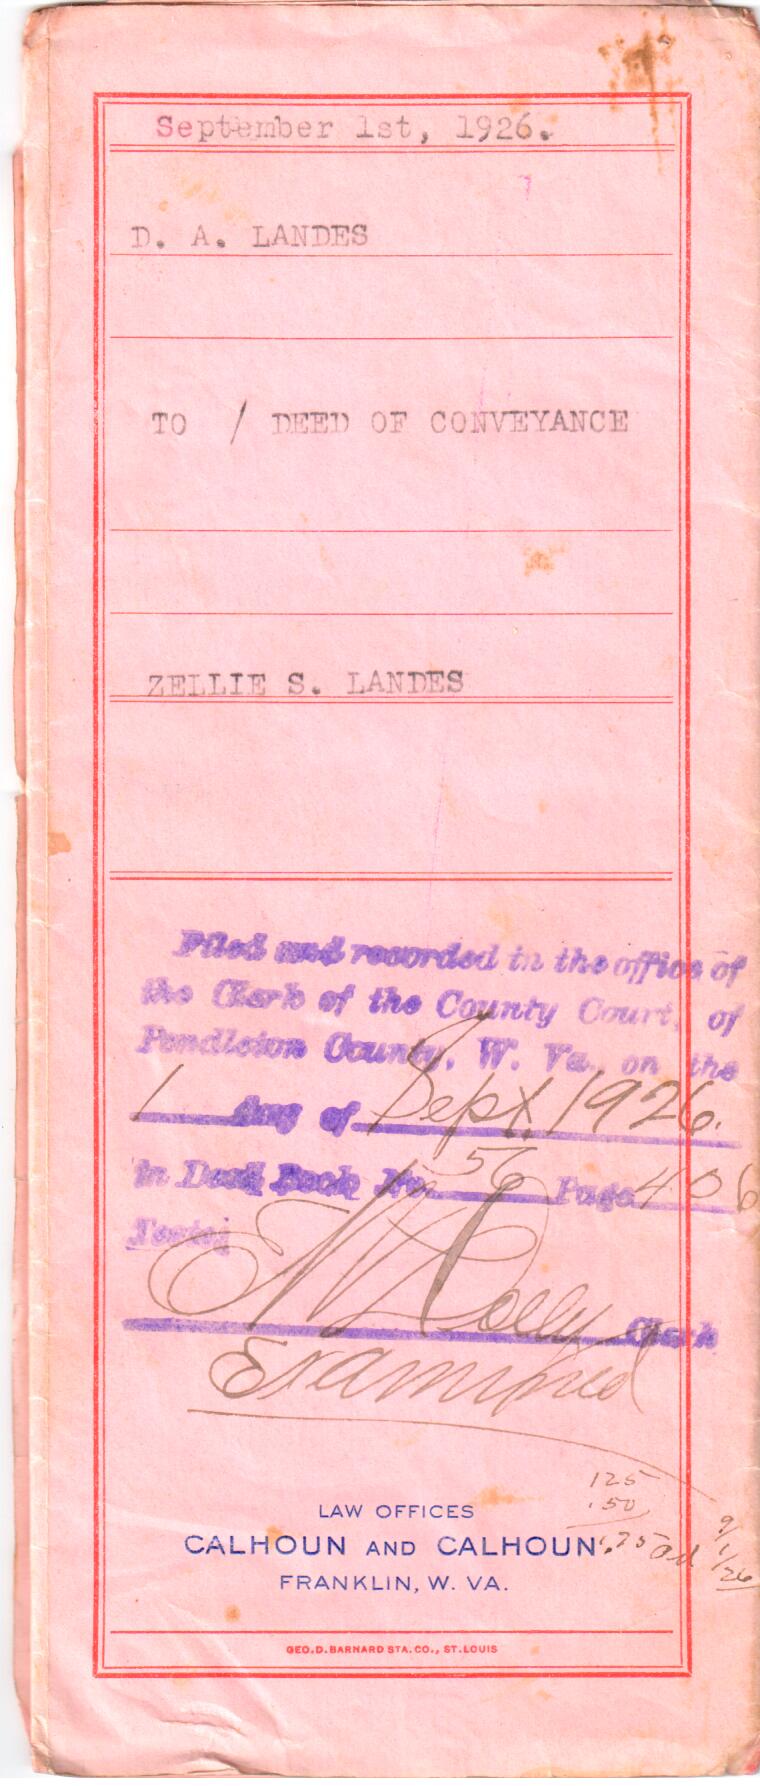 September 1st, 1926.
D. A. LANDES
TO / DEED OF CONVEYANCE
ZELLIE S. LANDES
Filed and recorded in the office of
the Clerk of the County Court, of
Pendleton County, W. Va., on the
1 day of Sept. 1926.
in Deed Book No. 56 Page 406
Teste:
Dolly Clerk
Examined
125
.50
LAW OFFICES
CALHOUN AND CALHOUN.
FRANKLIN, W. VA.
9/1/26
GEO. D. BARNARD STA. CO., ST. LOUIS